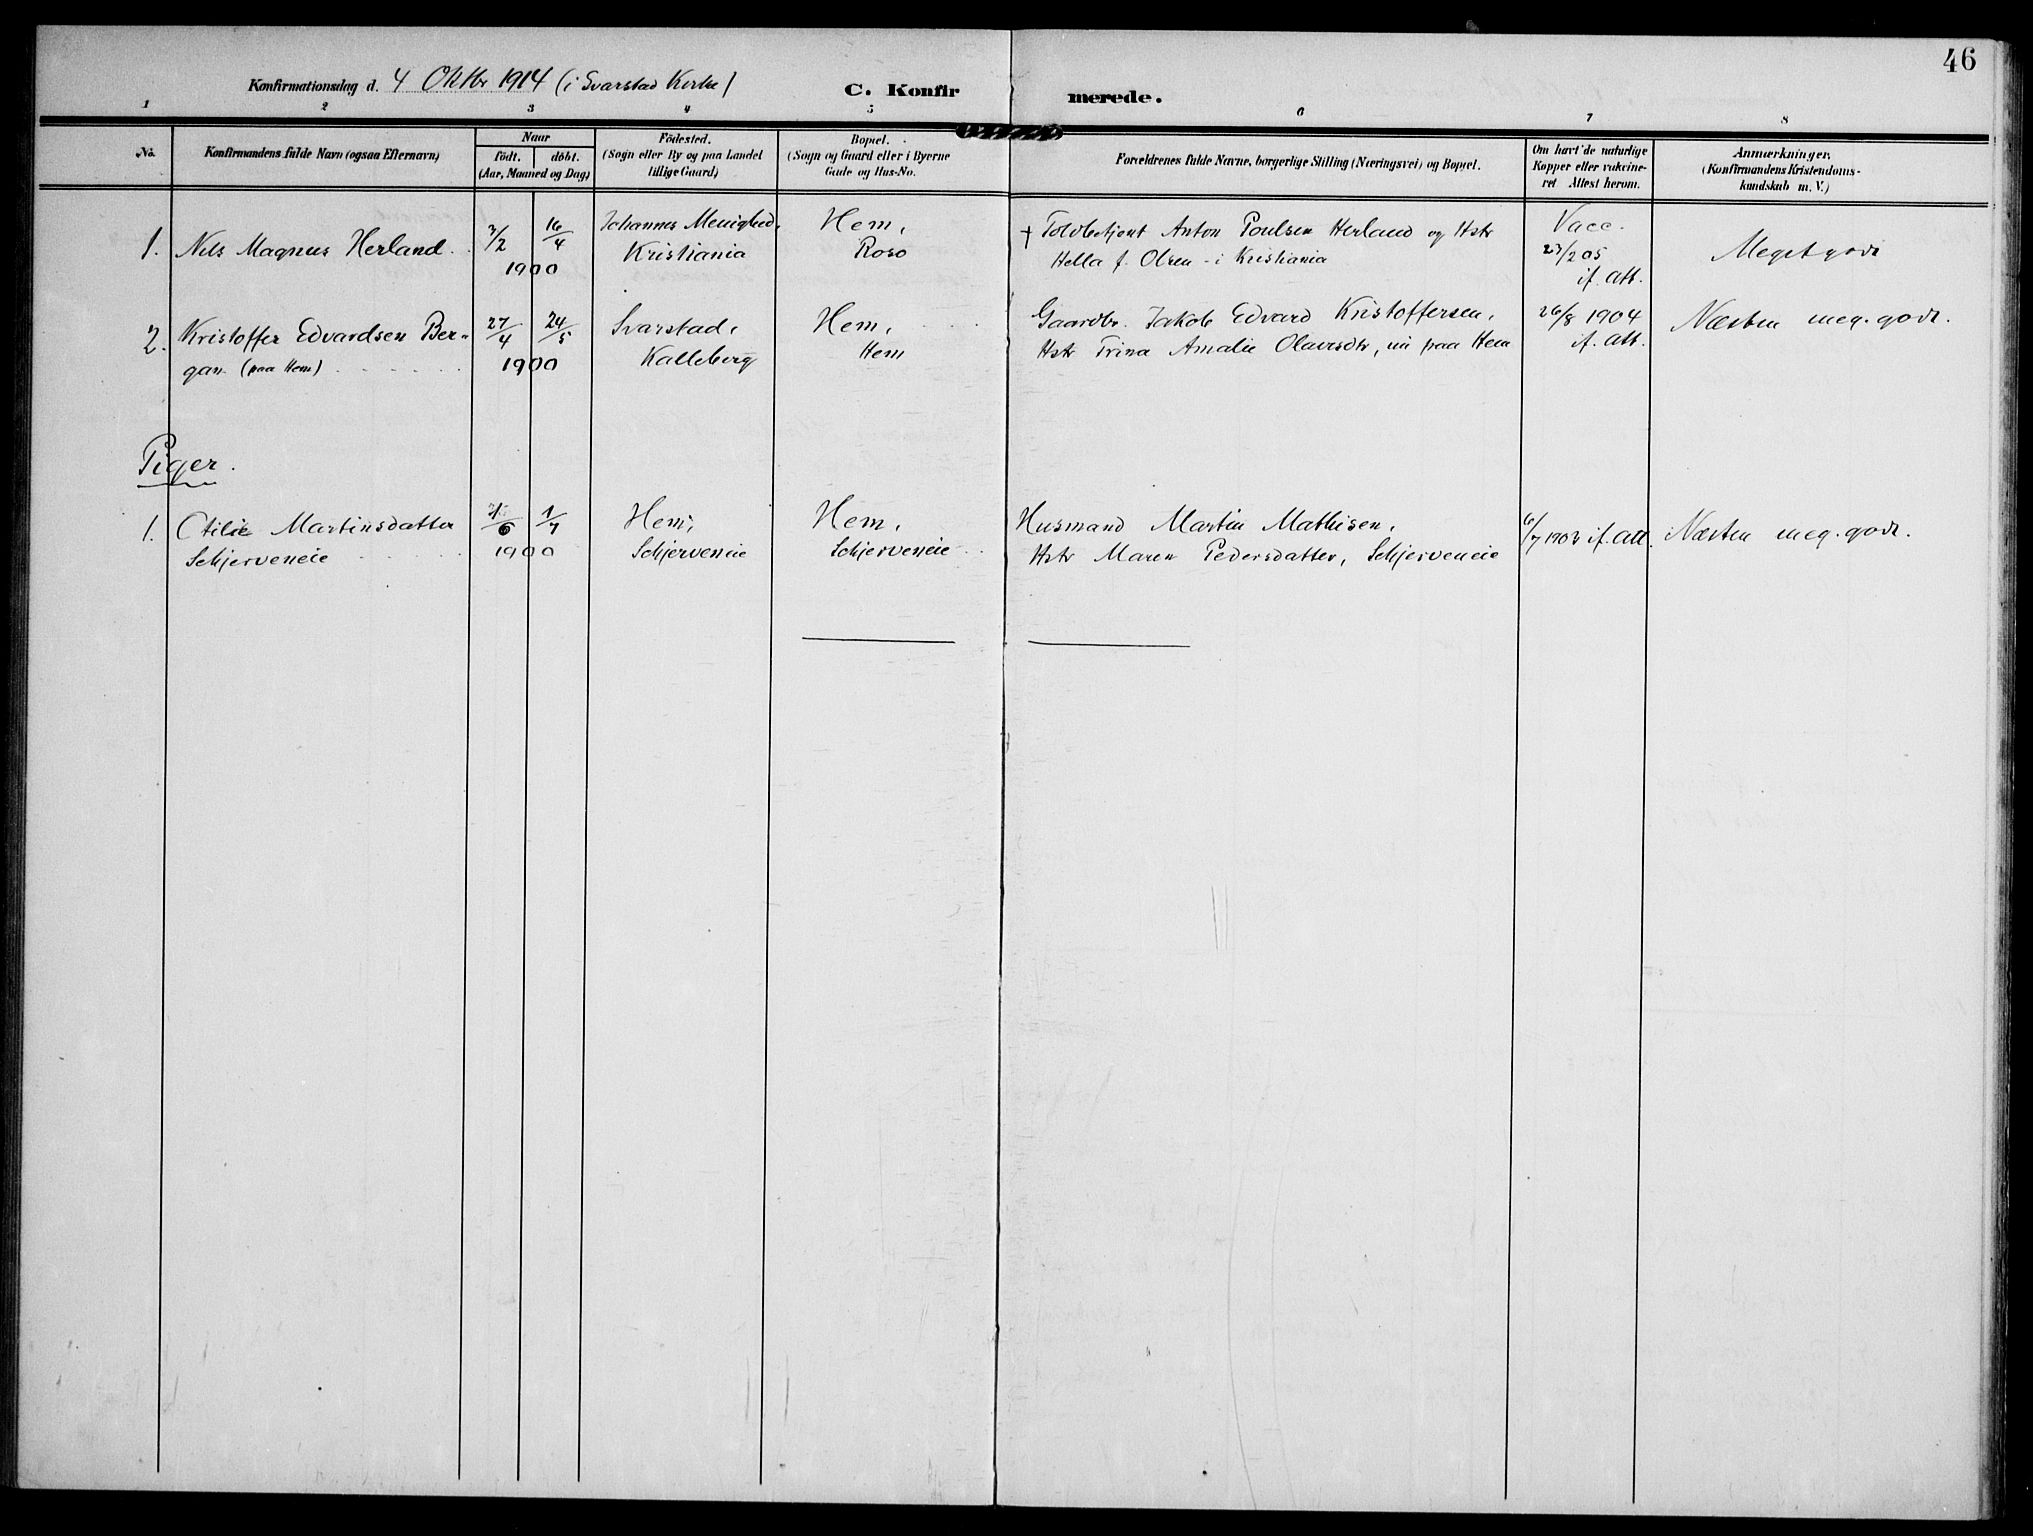 46
Konfirmationsdag d. 4 Oktbr 1914 (i Svarstad Kirke)
C. Konfirmerede.
1 2 3 4 5 6 7 8
No.
Konfirmandens fulde Navn (ogsaa Efternavn)
Naar
födt. döbt.
(Aar, Maaned og Dag)
Födested.
(Sogn eller By og paa Landet
tillige Gaard)
Bopæl.
(Sogn og Gaard eller i Byerne
Gade og Hus-No.
Forældrenes fulde Navne, borgerlige Stilling (Næringsvei) og Bopæl.
Om havt de naturlige
Kopper eller vakcine-
ret Attest herom.
Anmærkninger.
(Konfirmandens Kristendoms-
kundskab m. V.)
1. Nils Magnus Herland
3/2 16/4
1900
Johannes Menighed,
Kristiania
Hem,
Roso
† Toldbetjent Anton Poulsen Herland og Hstr
Hella f. Olsen - i Kristiania
Vacc.
23/2 05
if. att.
Meget godt
2. Kristoffer Edvardsen Ber-
gan (paa Hem)
27/4 24/5
1900
Svarstad,
Kalleberg
Hem,
Hem
Gaardbr. Jakob Edvard Kristoffersen,
Hstr Trina Amalie Olavesdtr, nu paa Hem
26/8 1904
if. att.
Næsten meg. godt.
Piger.
1. Otilie Martinsdatter
Schjerveneie
/6 1/7
1900
Hem,
Schjerveneie
Hem,
Schjerveneie
Husmand Martin Mathisen,
Hstr Maren Pedersdatter, Schjerveneie
6/7 1903 if. att.
Næsten meg. godt.